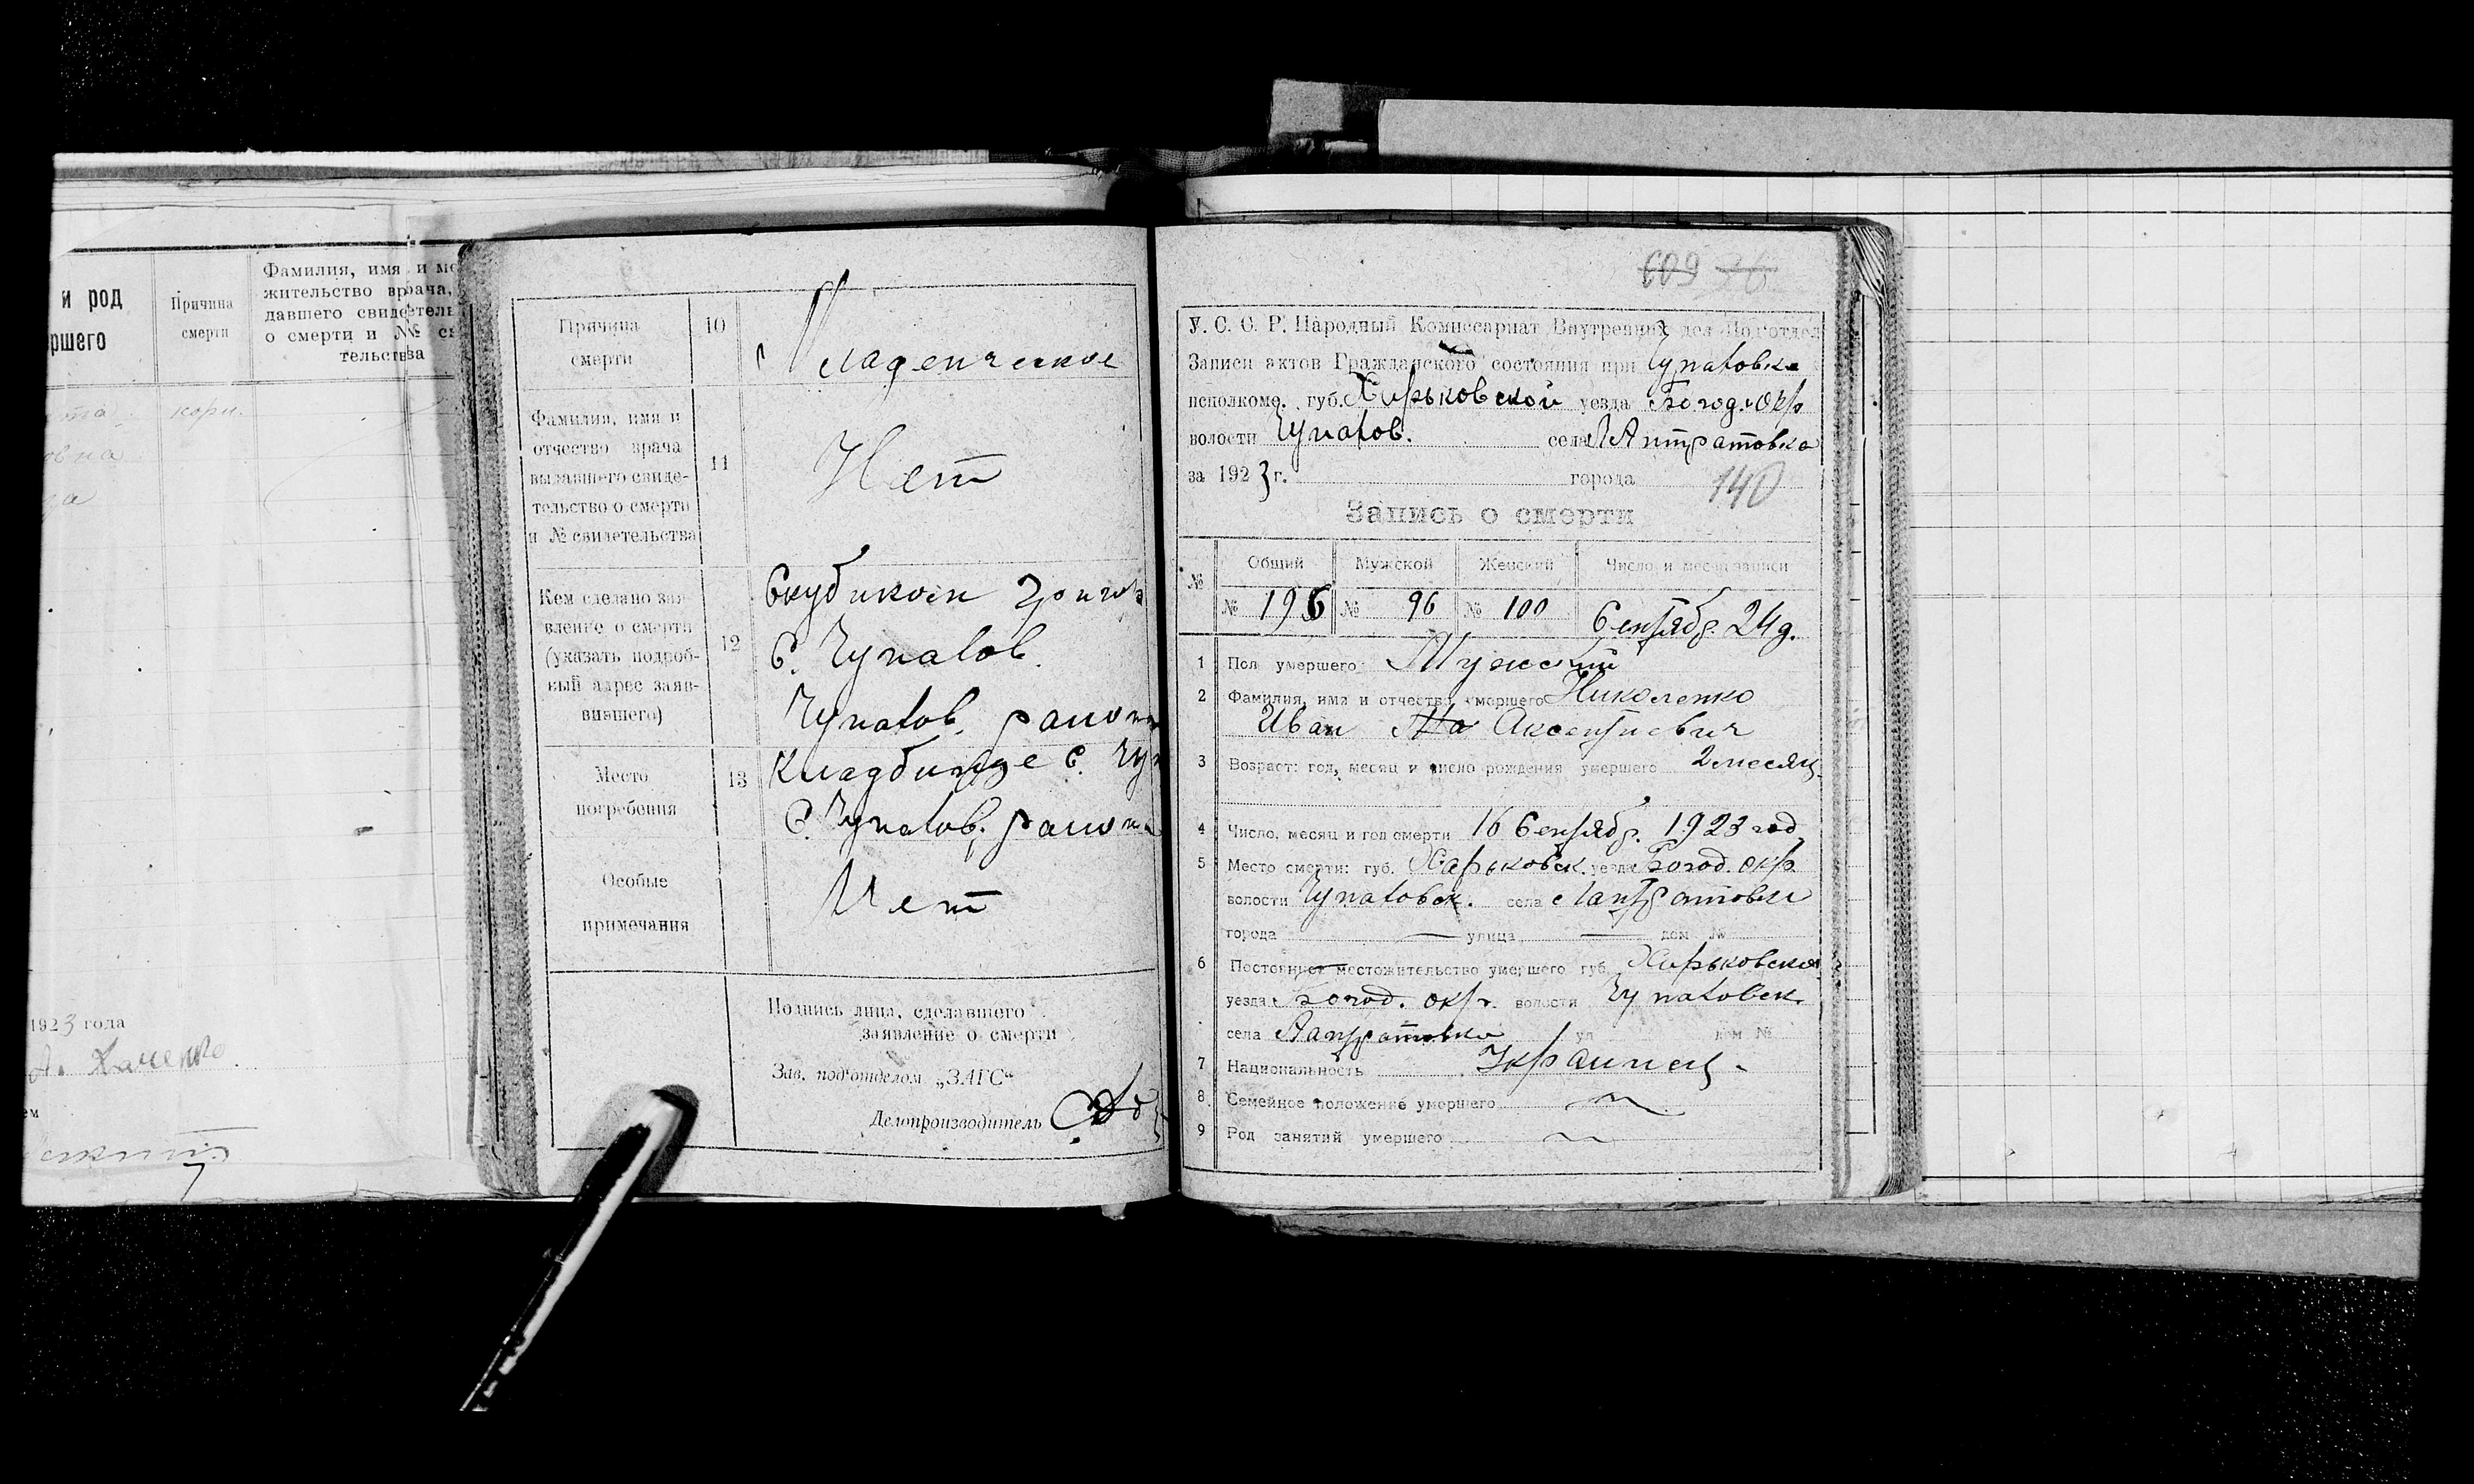 и род
Причина
смерти
Фамилия, имя и
жительство врача,
давшего
о смерти и №
тельства
кори.
1923 года
Причина
смерти
10
Младенческое
Фамилия, имя и
отчество врача
выдавшего свиде-
тельство о смерти
и № свидетельства
11
Нет
Кем сделано зая-
вление о смерти
(указать подроб-
ный адрес заяв-
вившего)
12
С. Чупахов.
Чупахов.
Место
погребения
13
Кладбище с.
С. Чупахов.
Особые
примечания
Нет
Подпись лица, сделавшего
заявление о смерти
Зав. под'отделом „ЗАГС“
Делопроизводитель
609 26
У. С. С. Р. Народный Комиссариат Внутренних дел Подотдел
Записи актов Гражданского состояния при
исполкоме, губ. Харьковской уезда Богод. окр
волости Чупахов. села
за 1923 г. города 140
Запись о смерти
№ Общий Мужской Женский Число и месяц записи
№ 196 № 96 № 100 Сентябр. 24 д.
1 Пол умершего Мужский
2 Фамилия, имя и отчество умершего Николенко
Иван Аксентиевич
3 Возраст: год, месяц и число рождения умершего 2 месяц.
4 Число, месяц и год смерти 16 Сентябр. 1923 год
5 Место смерти: губ. Харьковск. уезда Богод. окр.
волости Чупаховск. села
города улица дом №
6 Постоянное местожительство умершего губ. Харьковской
уезда Богод. окр. волости Чупаховск.
села ул дом №
7 Национальность Украинец.
8 Семейное положение умершего
9 Род занятий умершего